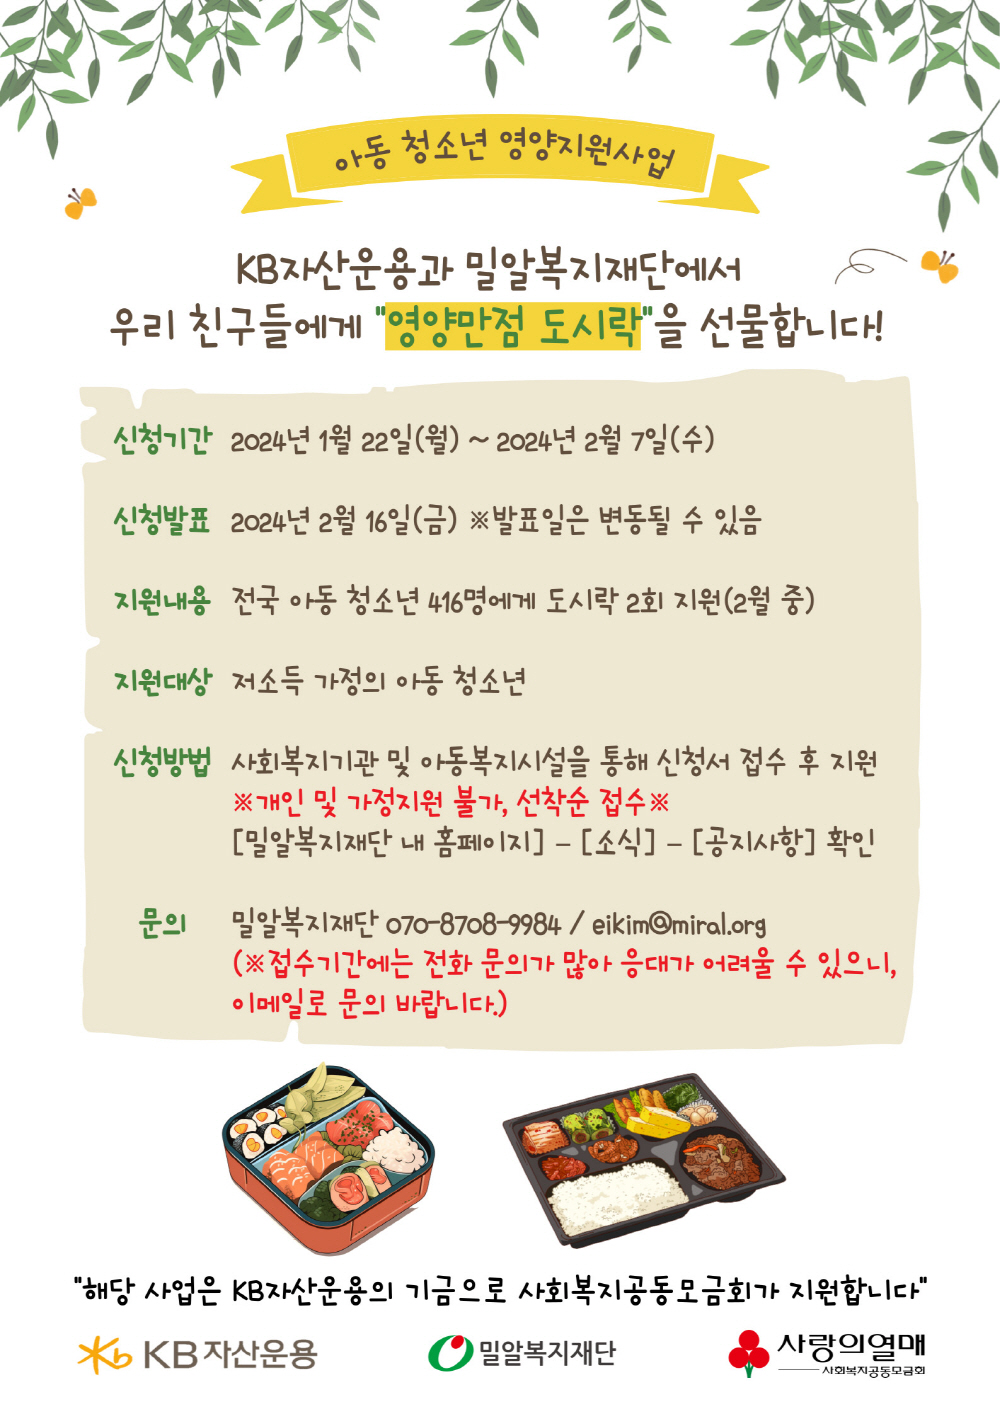 아동 청소년 영양지원사업
KB자산운용과 밀알복지재단에서
우리 친구들에게 "영양만점 도시락"을 선물합니다!
신청기간 2024년 1월 22일(월) ~ 2024년 2월 7일(수)
신청발표 2024년 2월 16일(금) ※발표일은 변동될 수 있음
지원내용 전국 아동 청소년 416명에게 도시락 2회 지원(2월 중)
지원대상 저소득 가정의 아동 청소년
신청방법 사회복지기관 및 아동복지시설을 통해 신청서 접수 후 지원
※개인 및 가정지원 불가, 선착순 접수※
[밀알복지재단 내 홈페이지] – [소식] – [공지사항] 확인
문의 밀알복지재단 070-8708-9984 / eikim@miral.org
(※접수기간에는 전화 문의가 많아 응대가 어려울 수 있으니,
이메일로 문의 바랍니다.)
"해당 사업은 KB자산운용의 기금으로 사회복지공동모금회가 지원합니다"
KB자산운용 밀알복지재단 사랑의열매
사회복지공동모금회